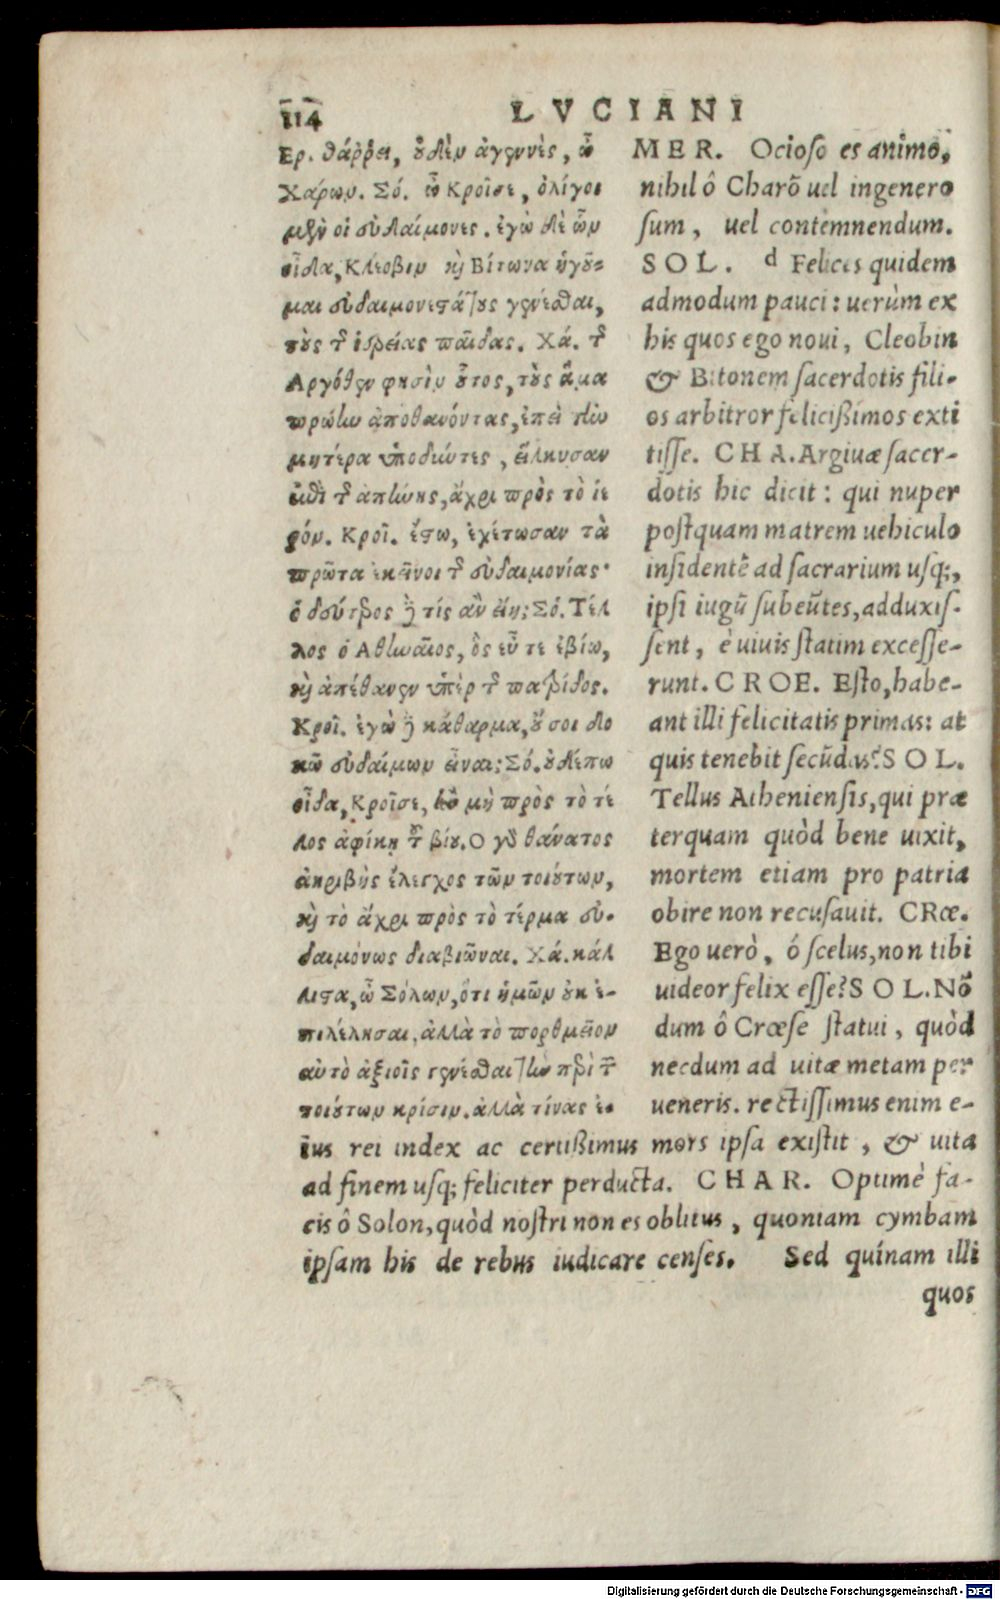 114
LVCIANI
Ερ. θάῤῥει, οὐδὲν ἀγεννὲς, ὦ
Χάρων. Σό. ὦ Κροῖσε, ὀλίγοι
μὲν οἱ εὐδαίμονες. ἐγὼ δὲ ὧν
οἶδα, Κλέοβιν καὶ Βίτωνα ἡγοῦ-
μαι εὐδαιμονεστάτους γενέσθαι,
τοὺς τῆς ἱερείας παῖδας. Χά. τῆς
Αργόθεν φησὶν οὗτος, τοὺς ἅμα
πρώην ἀποθανόντας, ἐπεὶ τὴν
μητέρα ὑποδύντες, εἵλκυσαν
ἐπὶ τῆς ἀπήνης, ἄχρι πρὸς τὸ ἱε
ρόν. Κροῖ. ἔστω, ἐχέτωσαν τὰ
πρῶτα ἐκεῖνοι τῆς εὐδαιμονίας·
ὁ δεύτερος δὲ τίς ἂν εἴη; Σό. Τέλ
λος ὁ Αθηναῖος, ὃς εὖ τε ἐβίω,
καὶ ἀπέθανεν ὑπὲρ τῆς πατρίδος.
Κροῖ. ἐγὼ δὲ κάθαρμα, οὔ σοι δο
κῶ εὐδαίμων εἶναι; Σό. οὐδέπω
οἶδα, Κροῖσε, ἢν μὴ πρὸς τὸ τέ
λος ἀφίκῃ τοῦ βίου. Ο γὰρ θάνατος
ἀκριβὴς ἔλεγχος τῶν τοιούτων,
καὶ τὸ ἄχρι πρὸς τὸ τέρμα εὐ-
δαιμόνως διαβιῶναι. Χά. κάλ
λιστα, ὦ Σόλων, ὅτι ἡμῶν οὐκ ἐ-
πιλέλησαι, ἀλλὰ τὸ πορθμεῖον
αὐτὸ ἀξιοῖς γενέσθαι τὴν περὶ τῶν
τοιούτων κρίσιν. ἀλλὰ τίνας ἐ-
MER. Ocioso es animo,
nihil ô Charõ uel ingenero
sum, uel contemnendum.
SOL. d Felices quidem
admodum pauci: uerùm ex
his quos ego noui, Cleobin
& Bitonem sacerdotis fili-
os arbitror felicißimos exti
tisse. CHA. Argiuæ sacer-
dotis hic dicit: qui nuper
postquam matrem uehiculo
insidentẽ ad sacrarium usq;,
ipsi iugũ subeũtes, adduxis-
sent, è uiuis statim excesse-
runt. CROE. Esto, habe-
ant illi felicitatis primas: at
quis tenebit secũdas? SOL.
Tellus Atheniensis, qui præ
terquam quòd bene uixit,
mortem etiam pro patria
obire non recusauit. CRœ.
Ego uerò, ó scelus, non tibi
uideor felix esse? SOL. Nõ
dum ô Crœse statui, quòd
necdum ad uitæ metam per
ueneris. rectissimus enim e-
ius rei index ac certißimus mors ipsa existit, & uita
ad finem usq; feliciter perducta. CHAR. Optimè fa-
cis ô Solon, quòd nostri non es oblitus, quoniam cymbam
ipsam his de rebus iudicare censes. Sed quínam illi
quos
Digitalisierung gefördert durch die Deutsche Forschungsgemeinschaft - DFG